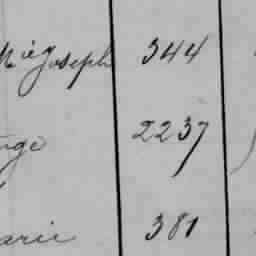 Joseph 344
nge 2237
arie 381